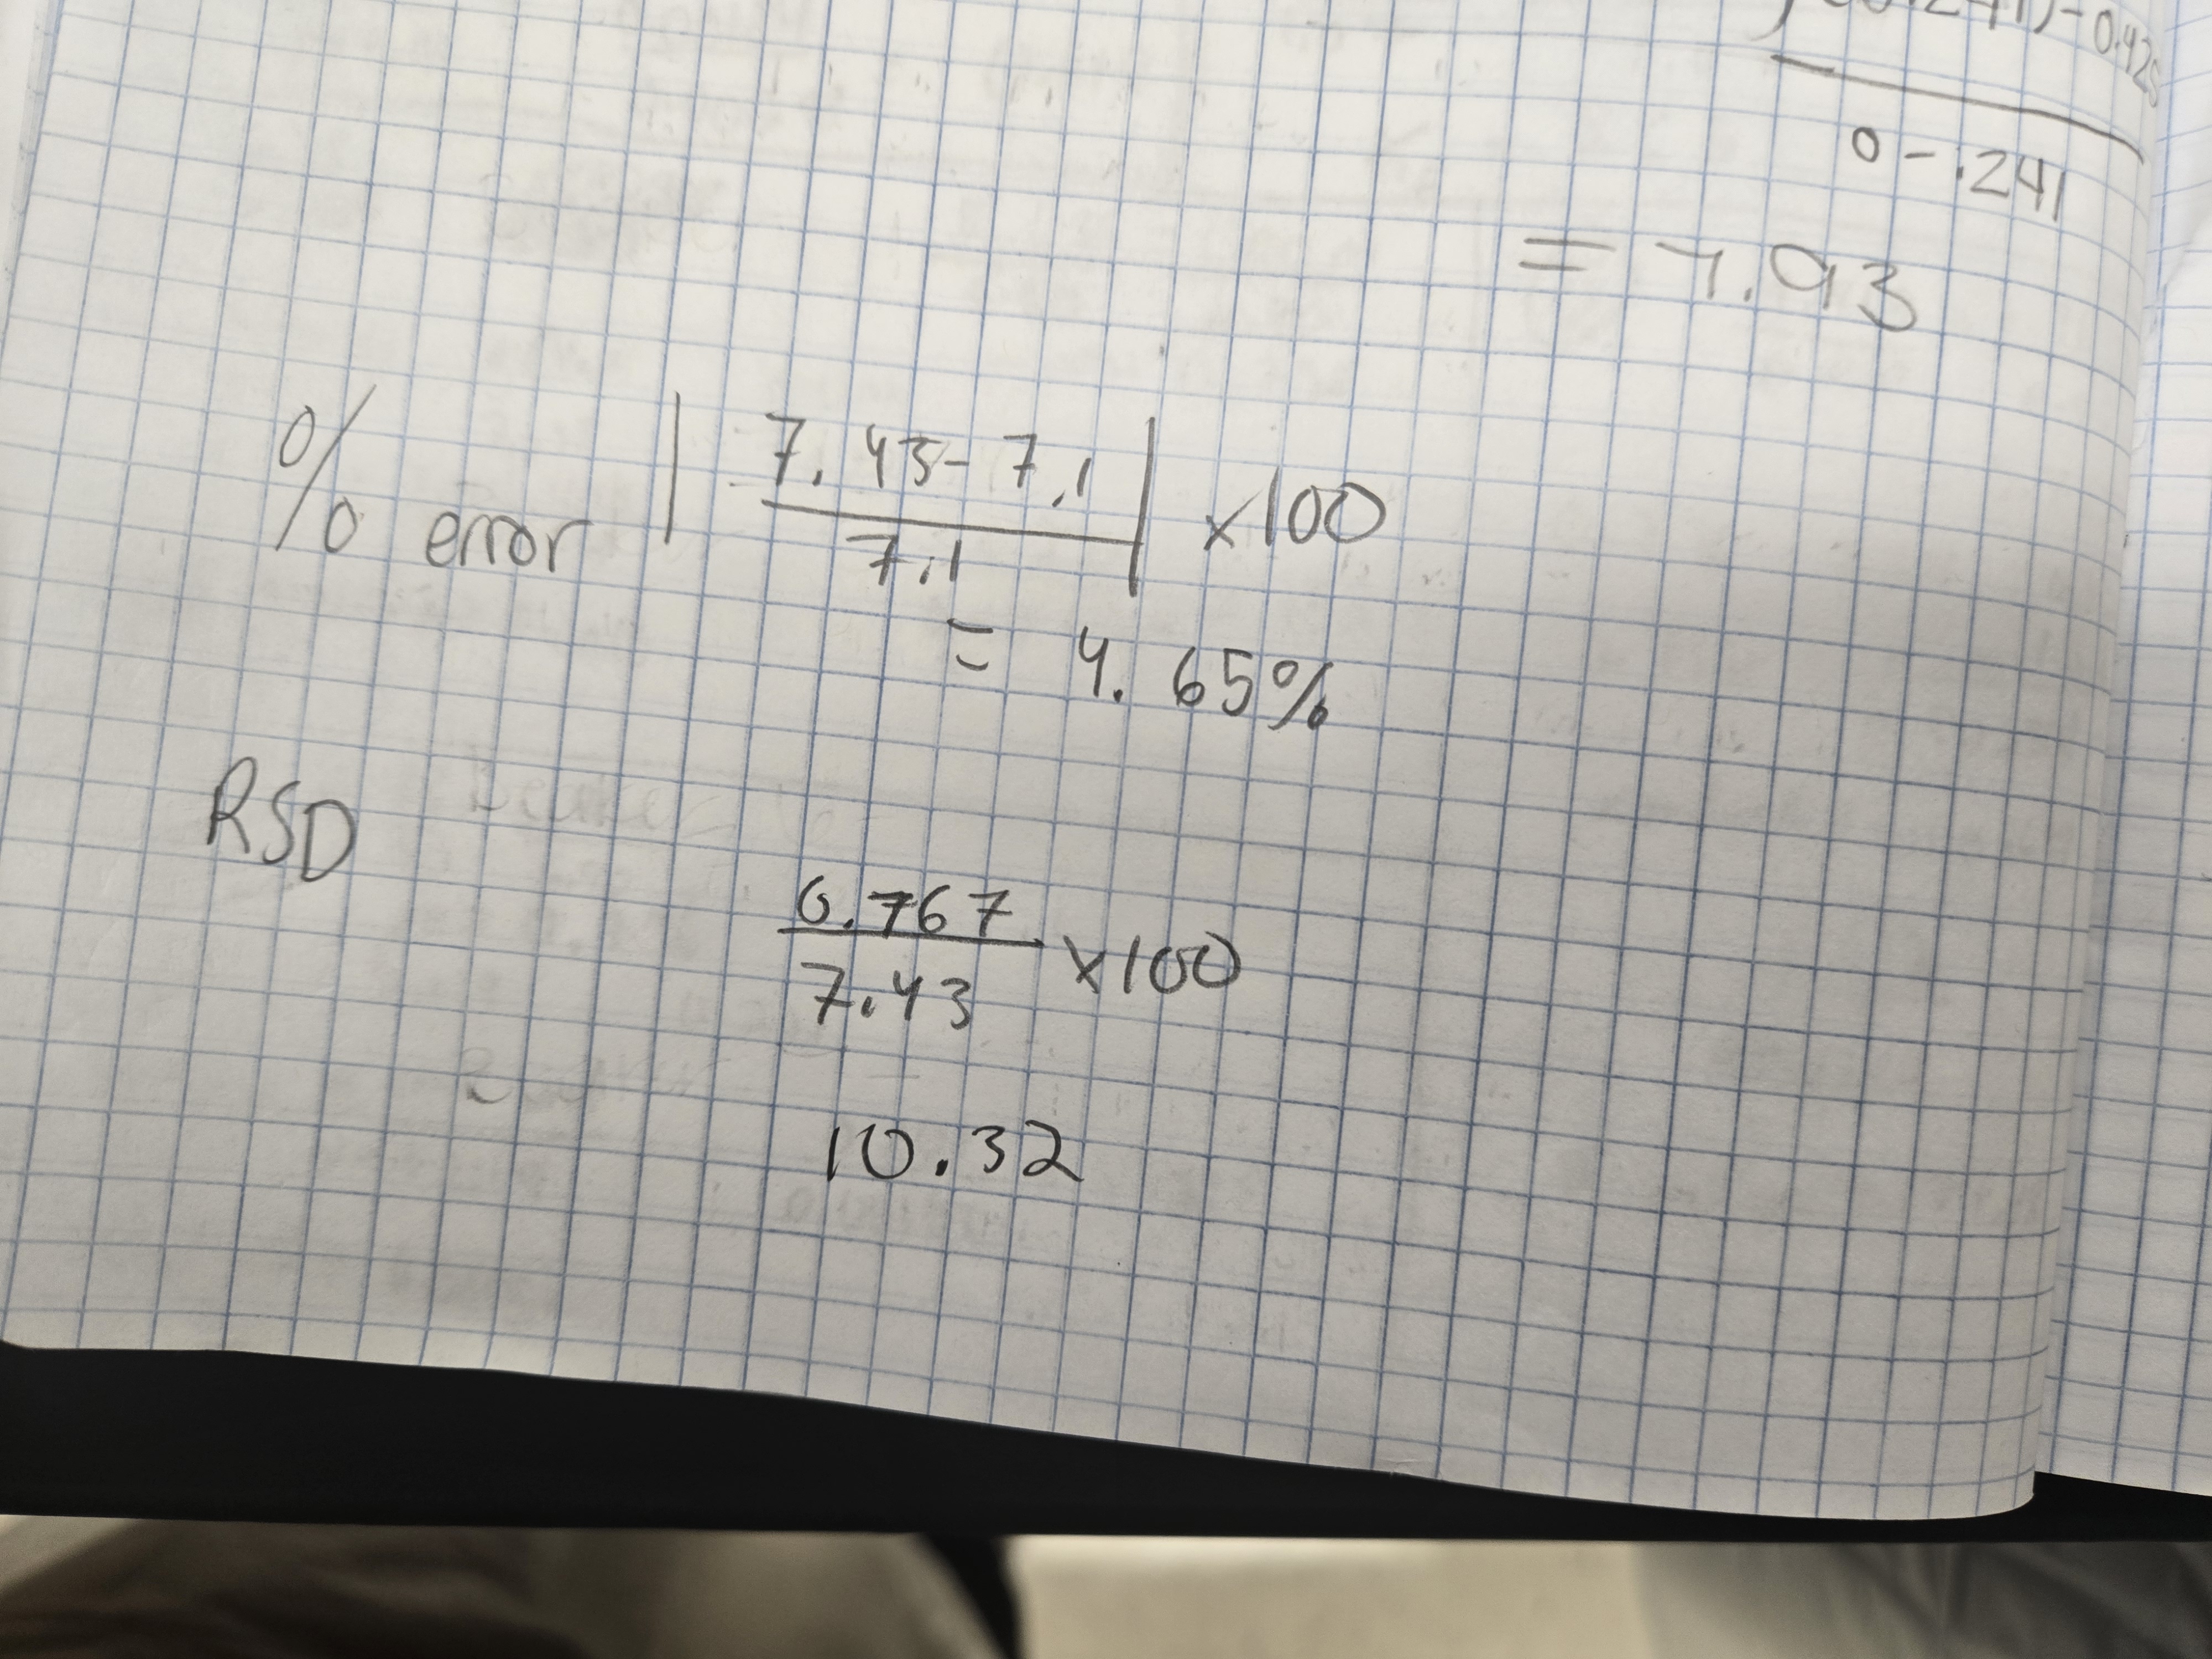 -0.425
0-.241
= 7.93
% error | 7.43-7.1 | x100
7.1
= 4.65%
RSD
0.767
7.43 x100
10.32